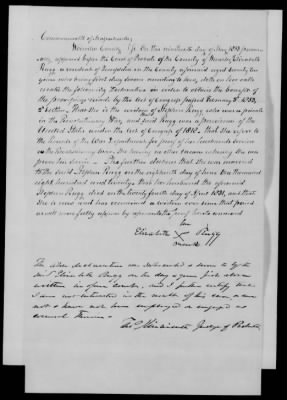 Commonwealth of Massachusetts,
Worcester County SS. On this nineteenth day of May 1853 person-
ally appeared before the Court of Probate of the County of Worcester Elizabeth
Rugg a resident of in the County aforesaid aged seventy six
years who being first duly sworn according to law, doth on her oath
make the following declaration in order to obtain the benefit of
the provisions made by the Act of Congress passed February 3d 1853,
2d section. That she is the widow of Stephen Rugg who was a private
in the Revolutionary War, and said Rugg was a pensioner of the
United States under the Act of Congress of 1818. That she refers to
the records of the War Department for proof of her husband's service
in the Revolutionary war. She having no other means
She further declares that she was married
to the said Stephen Rugg on the eighteenth day of June One thousand
eight hundred and twenty that her husband the aforesaid
Stephen Rugg died on the twenty fourth day of April 1831, and that
She is now and has remained a widow ever since that period
as will more fully appear by reference to proof hereto annexed
her
Elizabeth X Rugg
mark
The above declaration was subscribed & sworn to by the
said Elizabeth Rugg on the day & year first above
written in open Court, and I further certify that
I am not interested in the result of this case, & am
not & have not been employed or engaged as
counsel therein
Tho. Kinnicutt Judge of Probate